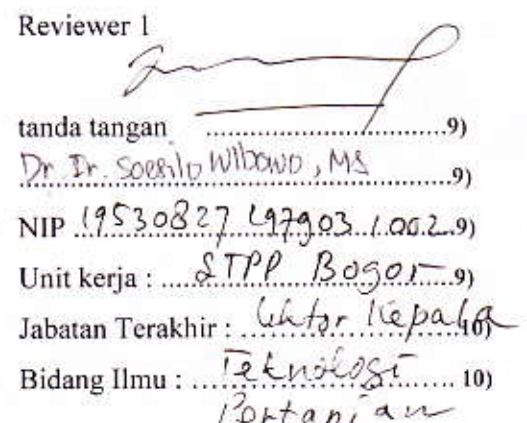 Reviewer 1
tanda tangan ........................................9)
Dr. Ir. Soesilo Wibowo, MS ........................................9)
NIP 19530827 197903 1 002 9)
Unit kerja : STPP Bogor 9)
Jabatan Terakhir : Lektor Kepala 10)
Bidang Ilmu : Teknologi 10)
Pertanian